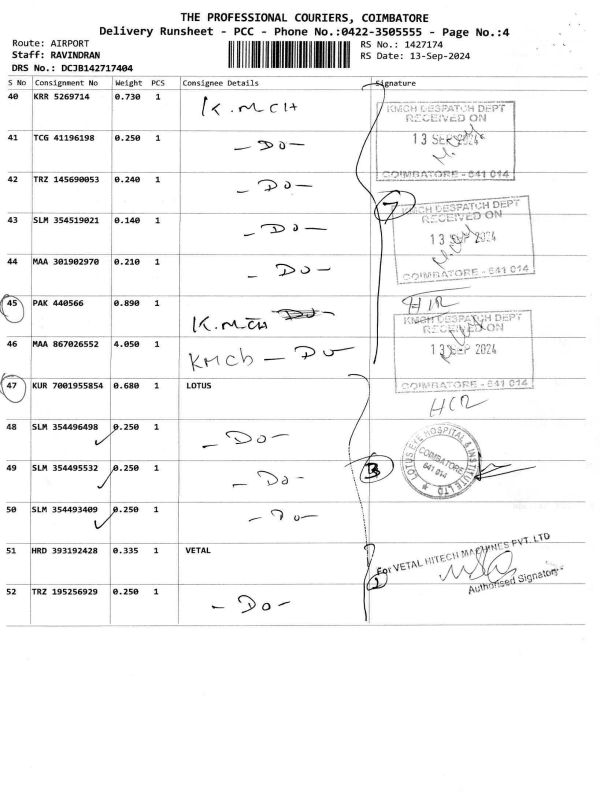 THE PROFESSIONAL COURIERS, COIMBATORE
Delivery Runsheet - PCC - Phone No.:0422-3505555 - Page No.:4
Route: AIRPORT RS No.: 1427174
Staff: RAVINDRAN RS Date: 13-Sep-2024
DRS No.: DCJB142717404
S No Consignment No Weight PCS Consignee Details Signature
40 KRR 5269714 0.730 1 K.MCH
KMCH DESPATCH DEPT
RECEIVED ON
13 SEP 2024
COIMBATORE - 641 014
41 TCG 41196198 0.250 1 - Do -
42 TRZ 145690053 0.240 1 - Do -
7
KMCH DESPATCH DEPT
RECEIVED ON
13 SEP 2024
COIMBATORE - 641 014
43 SLM 354519021 0.140 1 - Do -
44 MAA 301902970 0.210 1 - Do -
45 PAK 440566 0.890 1 K.MCH
KMCH DESPATCH DEPT
RECEIVED ON
13 SEP 2024
COIMBATORE - 641 014
46 MAA 867026552 4.050 1 KMCH - Do
47 KUR 7001955854 0.680 1 LOTUS
48 SLM 354496498 0.250 1 - Do -
LOTUS EYE HOSPITAL & INSTITUTE LTD
COIMBATORE
641 014
49 SLM 354495532 0.250 1 - Do -
50 SLM 354493409 0.250 1 - Do -
51 HRD 393192428 0.335 1 VETAL
For VETAL HITECH MACHINES PVT. LTD
Authorised Signatory
52 TRZ 195256929 0.250 1 - Do -